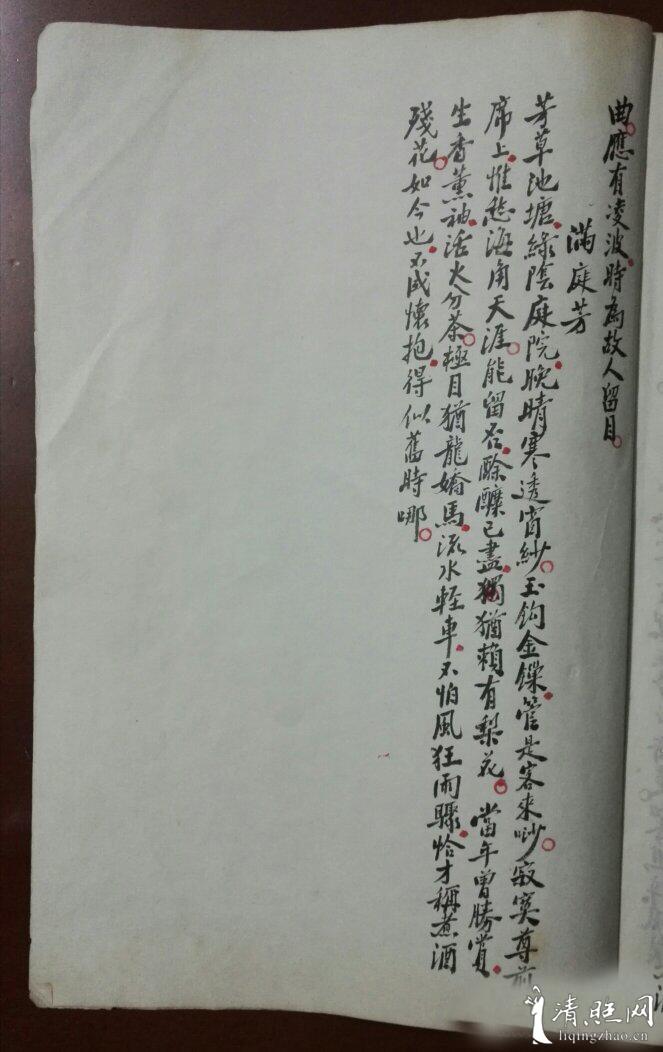 曲應有凌波時為故人留目
滿庭芳
芳草池塘綠陰庭院晚晴寒透窗紗玉鈎金鏁管是客來唦寂寞尊前
席上惟愁海角天涯能留否酴釄已盡獨猶賴有梨花當年曾勝賞
生香薰袖活火分茶極目猶龍嬌馬流水輕車不怕風狂雨驟恰才稱煮酒
殘花如今也不成懷抱得似舊時哪
清照网
liqingzhao.cn